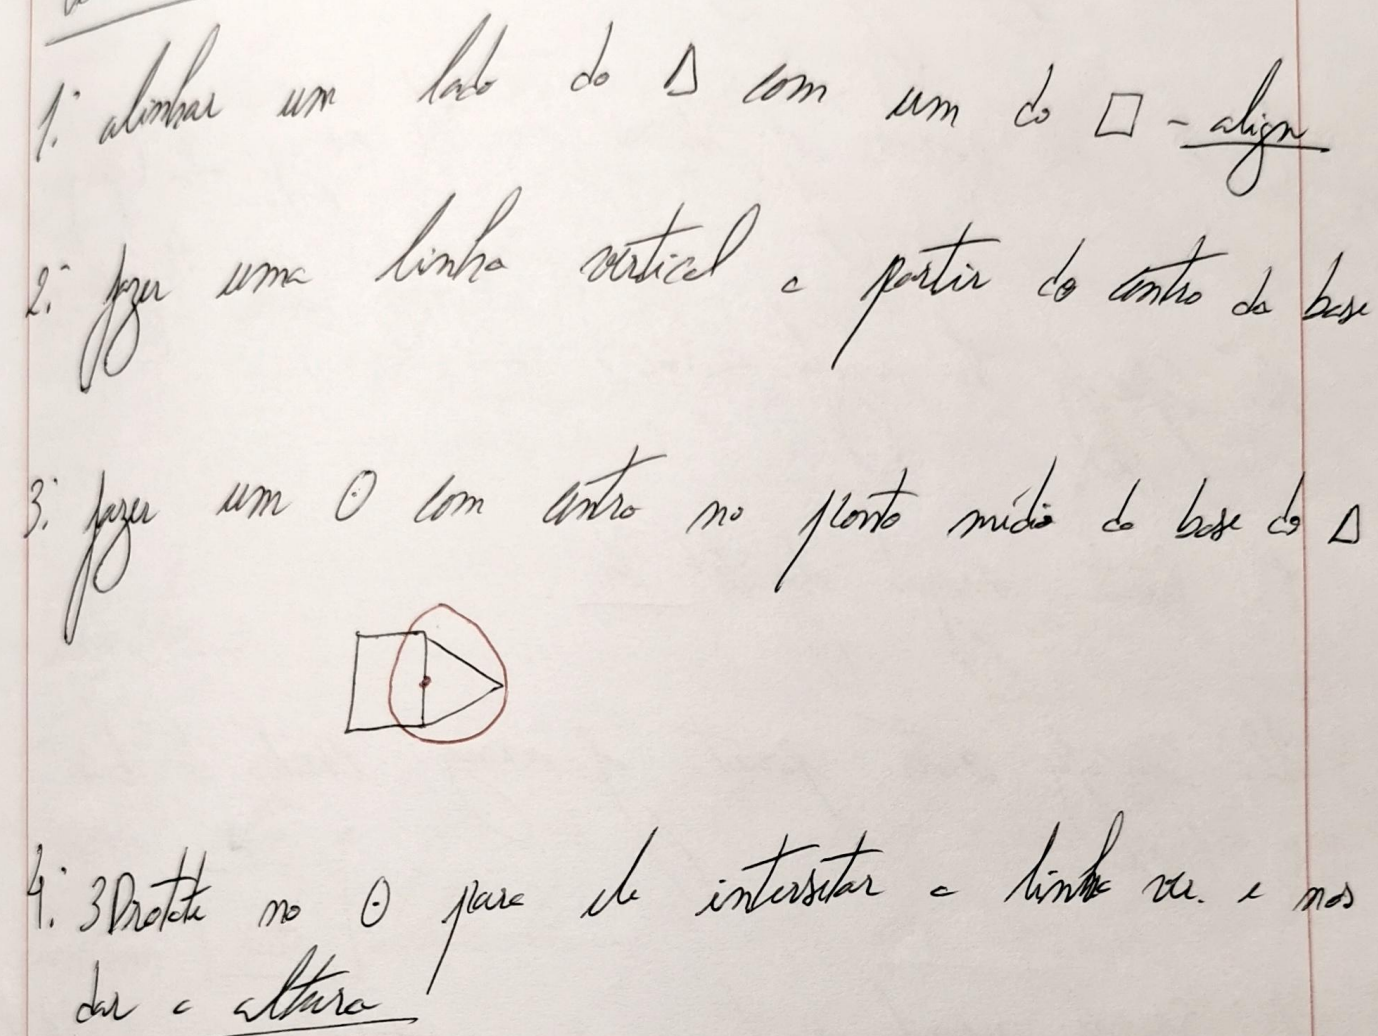 1: alinhar um lado do △ com um do □ - align
2: fazer uma linha vertical a partir do centro da base
3: fazer um ⊙ com centro no ponto médio da base do △
4: 3Drotate no ⊙ para ele intersetar a linha ver. e nos
dar a altura